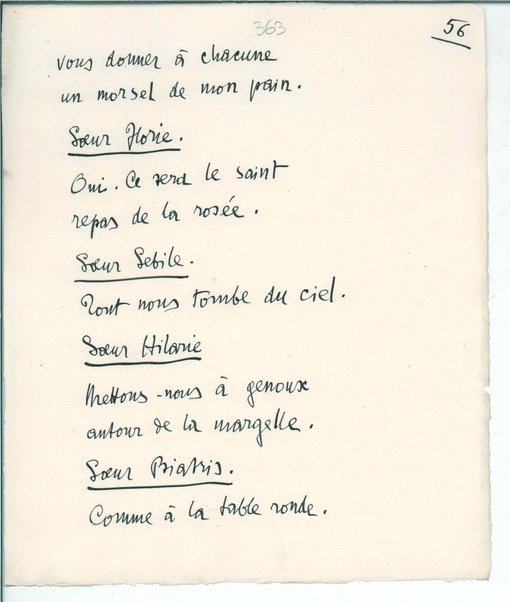 363
56
vous donner à chacune
un morsel de mon pain.
Sœur Florie.
Oui. Ce sera le saint
repas de la rosée.
Sœur Sebile.
Tout nous tombe du ciel.
Sœur Hilarie
Mettons-nous à genoux
autour de la margelle.
Sœur Biatris.
Comme à la table ronde.